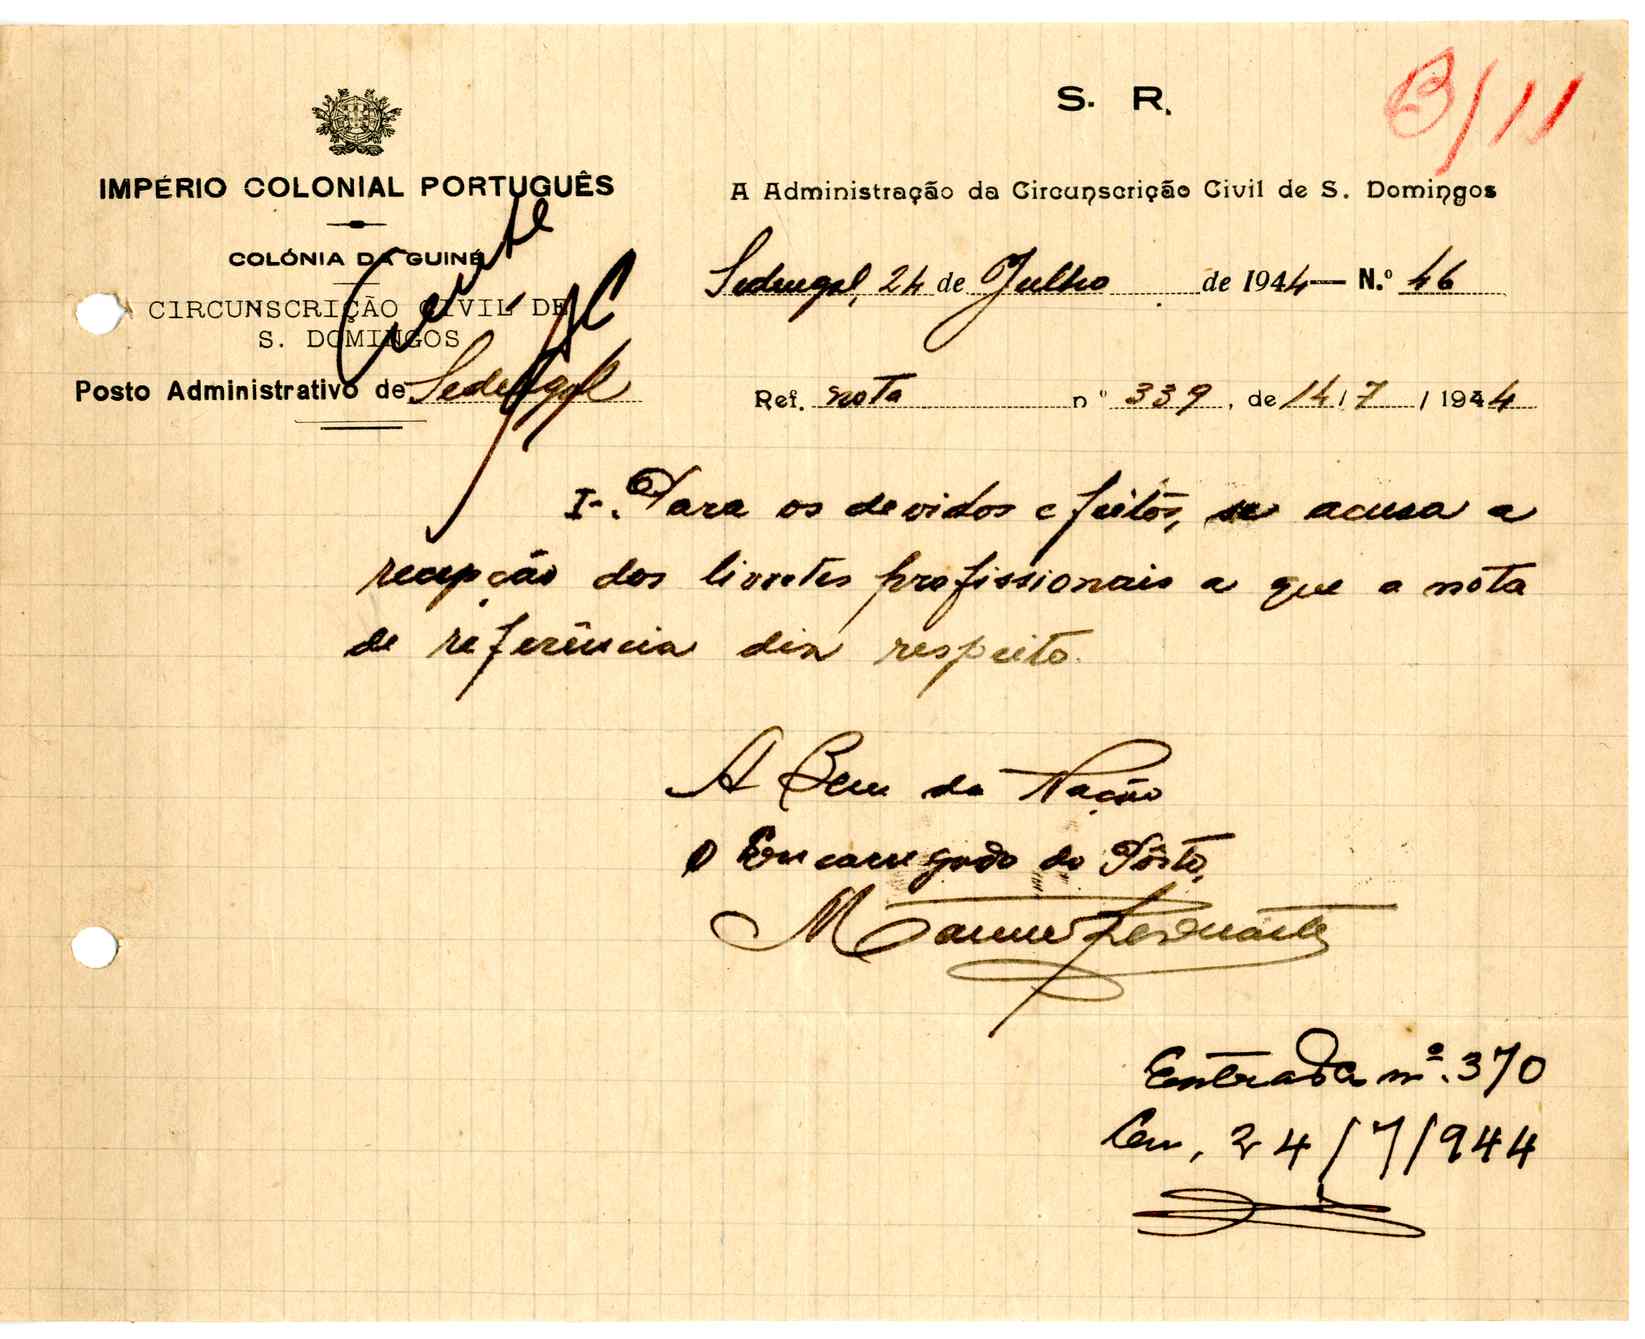 S. R.
B/11
IMPÉRIO COLONIAL PORTUGUÊS
COLÓNIA DA GUINÉ
CIRCUNSCRIÇÃO CIVIL DE
S. DOMINGOS
Posto Administrativo de Sedengal
Ciente
A Administração da Circunscrição Civil de S. Domingos
Sedengal, 24 de Julho de 1944— N.º 46
Ref. nota nº 339, de 14/7/1944
I-. Para os devidos efeitos, se acusa a
recepção dos livretes profissionais a que a nota
de referência diz respeito.
A Bem da Nação
O Encarregado do Pôsto,
Entrada nº. 370
Em, 24/7/944